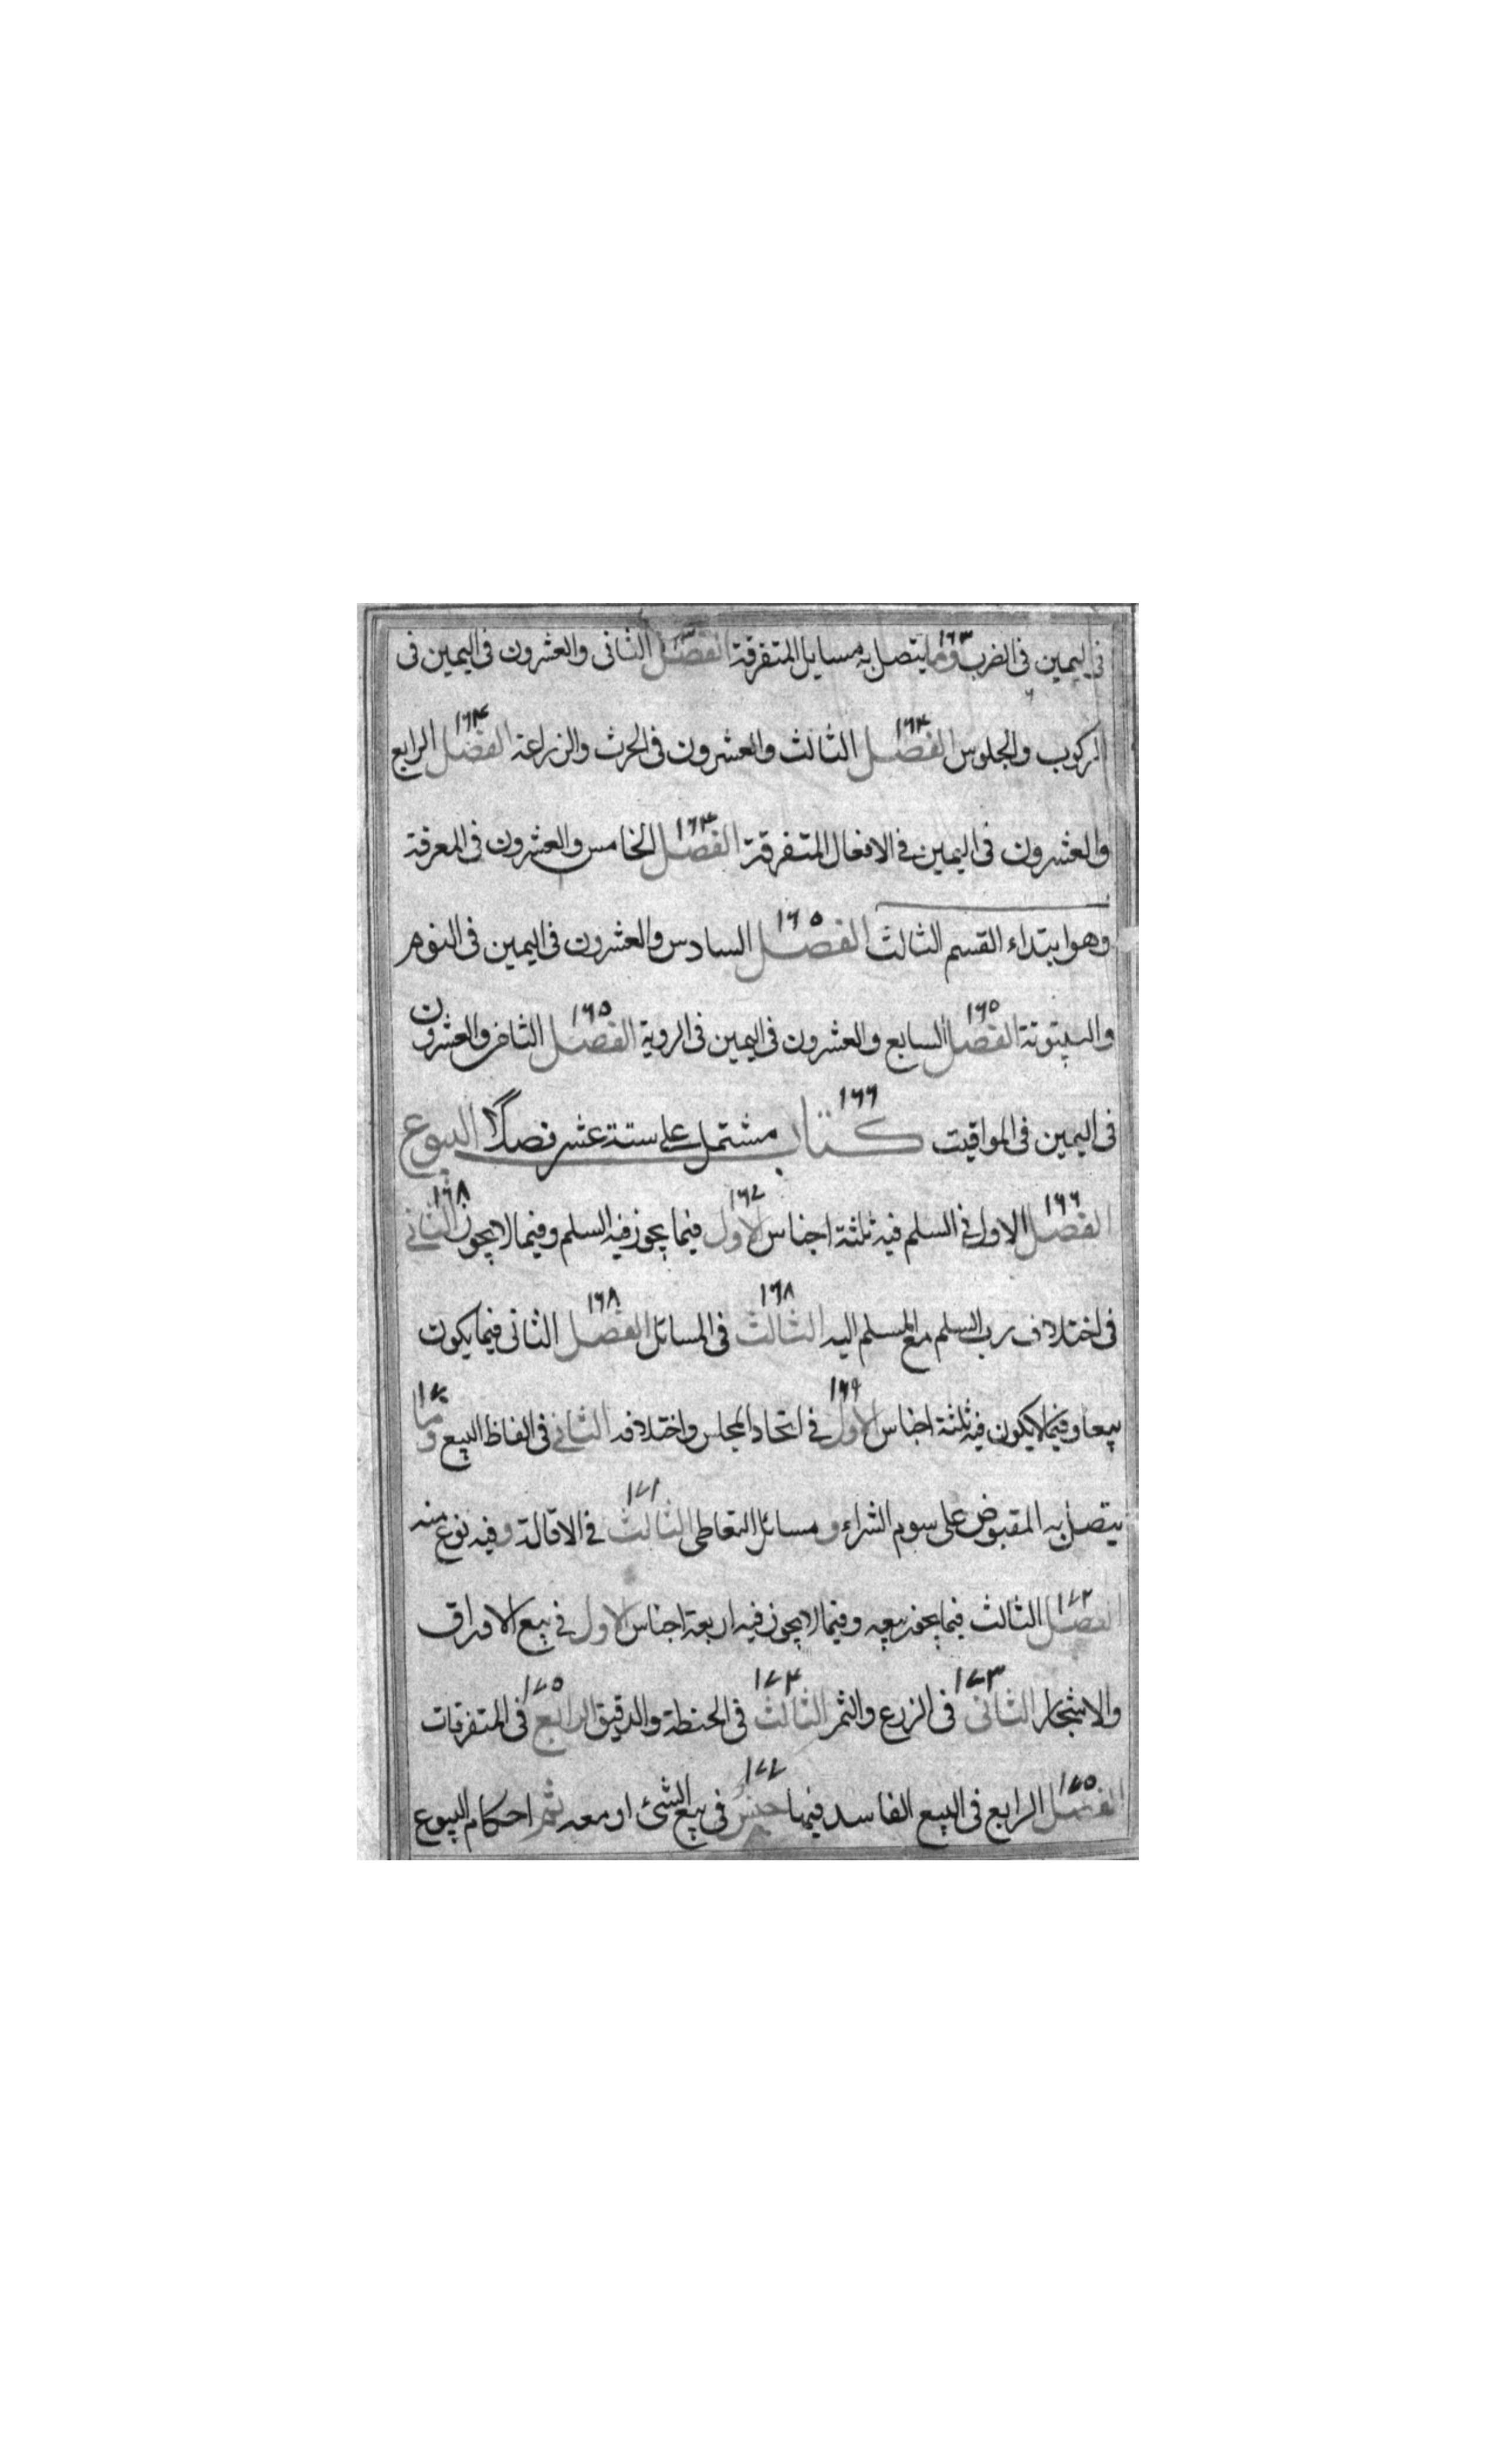 فى اليمين فى الضرب وما يتصل به مسايل المتفرقة الفصل الثانى والعشرون فى اليمين فى
الركوب والجلوس الفصل الثالث والعشرون فى الحرث والزراعة الفصل الرابع
والعشرون فى اليمين فى الافعال المتفرقة الفصل الخامس والعشرون فى المعرفة
وهو ابتداء القسم الثالث الفصل السادس والعشرون فى اليمين فى النوم
والبيتوتة الفصل السابع والعشرون فى اليمين فى الروية الفصل الثامن والعشرون
فى اليمين فى المواقيت كتاب مشتمل على ستة عشر فصلا البيوع
الفصل الاول فى السلم فيه ثلثة اجناس الاول فيما يجوز فيه السلم وفيما لا يجوز الثانى
فى اختلاف رب السلم مع المسلم اليه الثالث فى المسائل الفصل الثانى فيما يكون
بيعا وفيما لا يكون فيه ثلثة اجناس الاول فى اتحاد المجلس واختلافه الثانى فى الفاظ البيع وما
يتصل به المقبوض على سوم الشراء و مسائل التعاطى الثالث فى الاقالة وفيه نوع منه
الفصل الثالث فيما يجوز بيعه وفيما لا يجوز فيه اربعة اجناس الاول فى بيع الاوراق
والاشجار الثانى فى الزرع والثمر الثالث فى الحنطة والدقيق الرابع فى المتفرقات
الفصل الرابع فى البيع الفاسد فيها جنس فى بيع الشئ او معه ثم احكام البيوع